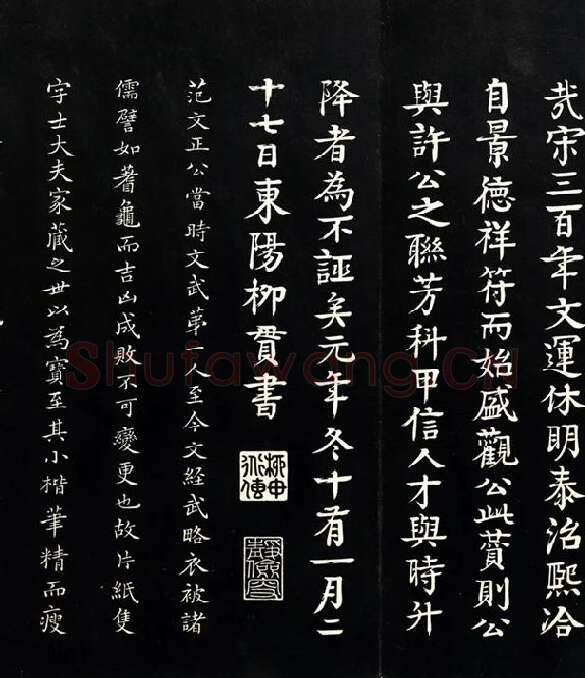 哉宋三百年文運休明泰治熙洽
自景徳祥符而始盛觀公此賛則公
與許公之聯芳科甲信人才與時升
降者為不誣矣元年冬十有一月二
十七日東陽柳貫書
范文正公當時文武第一人至今文経武略衣被諸
儒譬如蓍龜而吉凶成敗不可變更也故片紙隻
字士大夫家藏之世以為寶至其小楷筆精而瘦
Shufawang.Cn